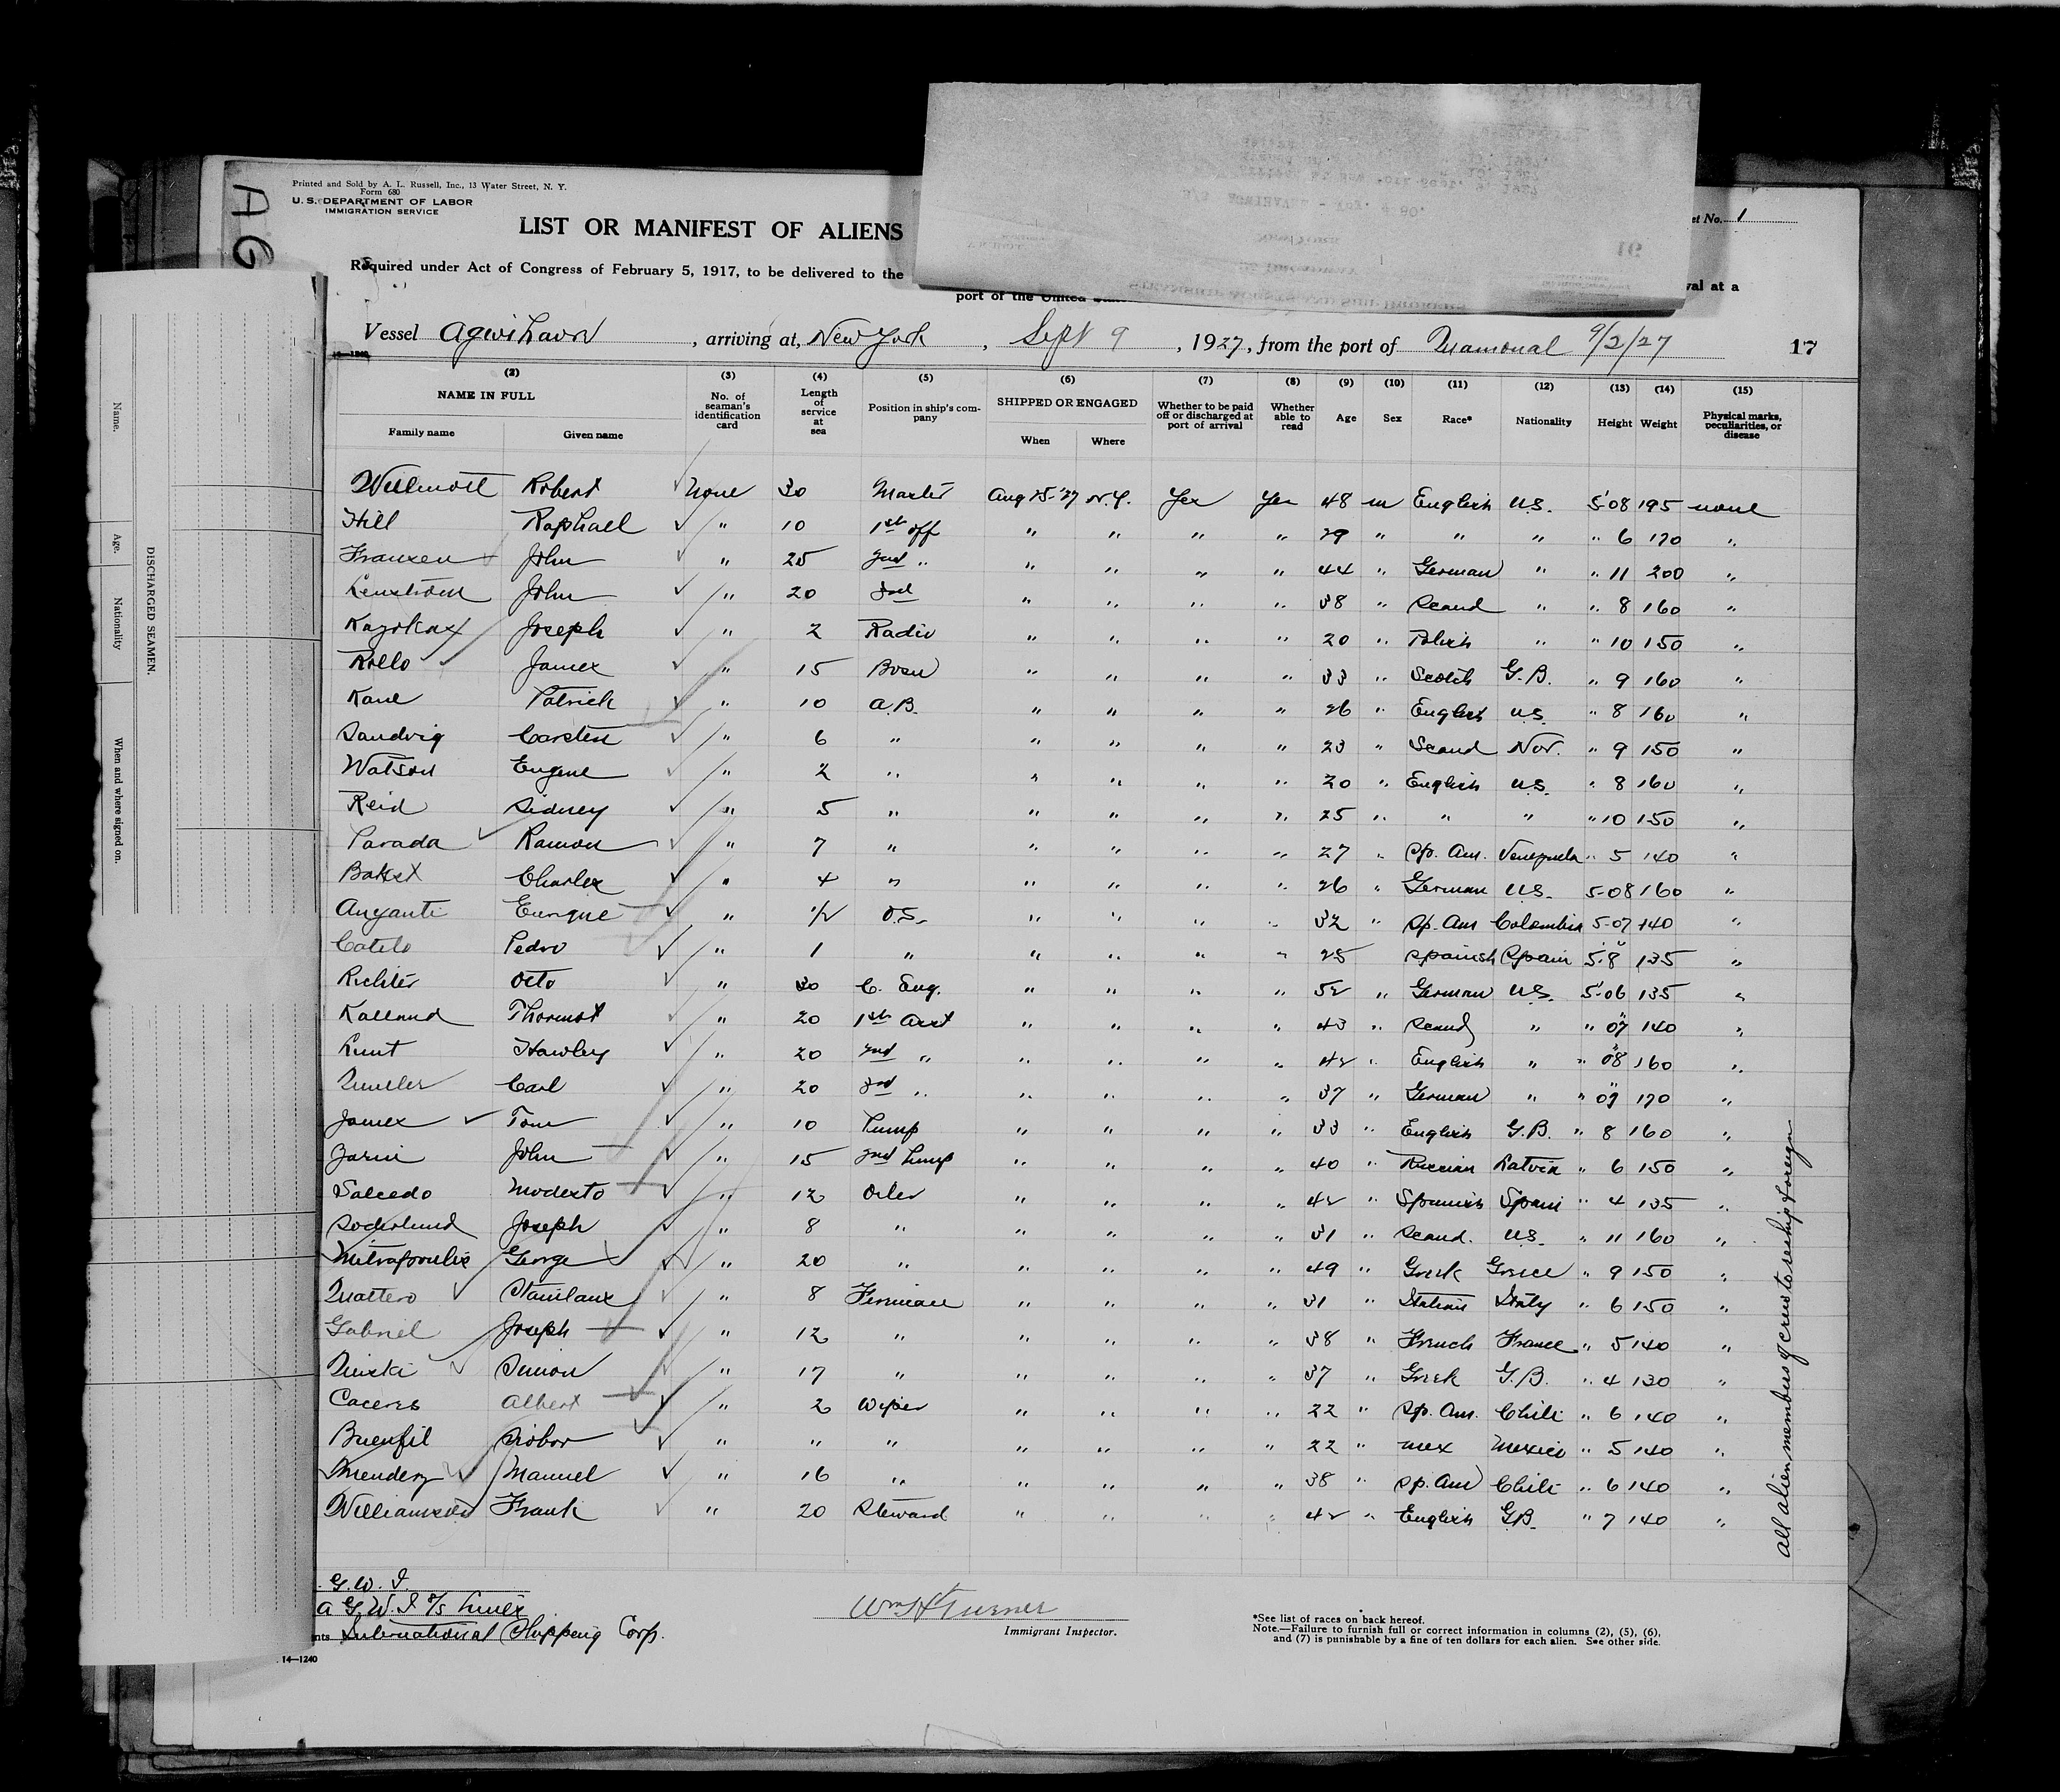 AG
Printed and Sold by A. L. Russell, Inc., 13 Water Street, N. Y.
Form 680
U. S. DEPARTMENT OF LABOR
IMMIGRATION SERVICE
LIST OR MANIFEST OF ALIENS
et No. 1
Required under Act of Congress of February 5, 1917, to be delivered to the
val at a
port of the United
Vessel Agwihavn, arriving at, New York, Sept 9, 1927, from the port of Mamonal 9/2/27
17
(2) (3) (4) (5) (6) (7) (8) (9) (10) (11) (12) (13) (14) (15)
NAME IN FULL No. of seaman's identification card Length of service at sea Position in ship's company SHIPPED OR ENGAGED Whether to be paid off or discharged at port of arrival Whether able to read Age Sex Race* Nationality Height Weight Physical marks, peculiarities, or disease
Family name Given name When Where
Robert None 30 Master Aug 15-27 N.Y. Yes Yes 48 m English U.S. 5'08 195 none
Hill Raphael " 10 1st off " " " " 29 " " " " 6 170 "
Franzen John " 25 2nd " " " " " 44 " German " " 11 200 "
John " 20 3rd " " " " 38 " Scand " " 8 160 "
Joseph " 2 Radio " " " " 20 " Polish " " 10 150 "
Rollo James " 15 Bosn " " " " 33 " Scotch G.B. " 9 160 "
Kane Patrick " 10 A.B. " " " " 26 " English U.S. " 8 160 "
Sandvig Carsten " 6 " " " " " 23 " Scand Nor. " 9 150 "
Watson Eugene " 2 " " " " " 20 " English U.S. " 8 160 "
Reid Sidney " 5 " " " " " 25 " " " " 10 150 "
Parada Ramon " 7 " " " " " 27 " Sp. Am. Venezuela " 5 140 "
Charles " 4 " " " " " 26 " German U.S. 5-08 160 "
Enrique " 1/2 O.S. " " " " 32 Sp. Am Colombia 5-07 140 "
Pedro " 1 " " " " " 25 Spanish Spain 5'8" 135 "
Richter Otto " 30 C. Eng. " " " " 52 " German U.S. 5'06 135 "
Kalland " 20 1st Asst " " " " 43 " Scand " " 07 140 "
Hawley " 20 2nd " " " " " 42 " English " " 08 160 "
Carl " 20 3rd " " " " " 37 " German " " 07 170 "
James Tom " 10 Pump " " " " 33 " English G.B. " 8 160 "
John " 15 2nd Pump " " " " 40 " Russian Latvia " 6 150 "
Salcedo Modesto " 12 Oiler " " " " 42 " Spanish Spain " 4 135 "
Soderlund Joseph " 8 " " " " " 31 " Scand. U.S. " 11 160 "
Mitrapoulis George " 20 " " " " " 49 " Greek Greece " 9 150 "
Quattero Stanilaus " 8 Fireman " " " " 31 " Italian Italy " 6 150 "
Gabriel Joseph " 12 " " " " " 38 " French France " 5 140 "
Simon " 17 " " " " " 37 " Greek G.B. " 4 130 "
Caceres Albert " 2 Wiper " " " " 22 " Sp. Am. Chili " 6 140 "
Buenfil " " " " " " " 22 " Mex Mexico " 5 140 "
Mendez Manuel " 16 " " " " " 38 " Sp. Am Chili " 6 140 "
Williamson Frank " 20 Steward " " " " 42 " English G.B. " 7 140 "
all alien members of crew to reship foreign
Name.
Age.
Nationality
When and where signed on.
DISCHARGED SEAMEN.
G. W. I.
A G. W. I S/S Lines
nts International Shipping Corp.
Wm H Turner
Immigrant Inspector.
*See list of races on back hereof.
Note.—Failure to furnish full or correct information in columns (2), (5), (6),
and (7) is punishable by a fine of ten dollars for each alien. See other side.
14—1240